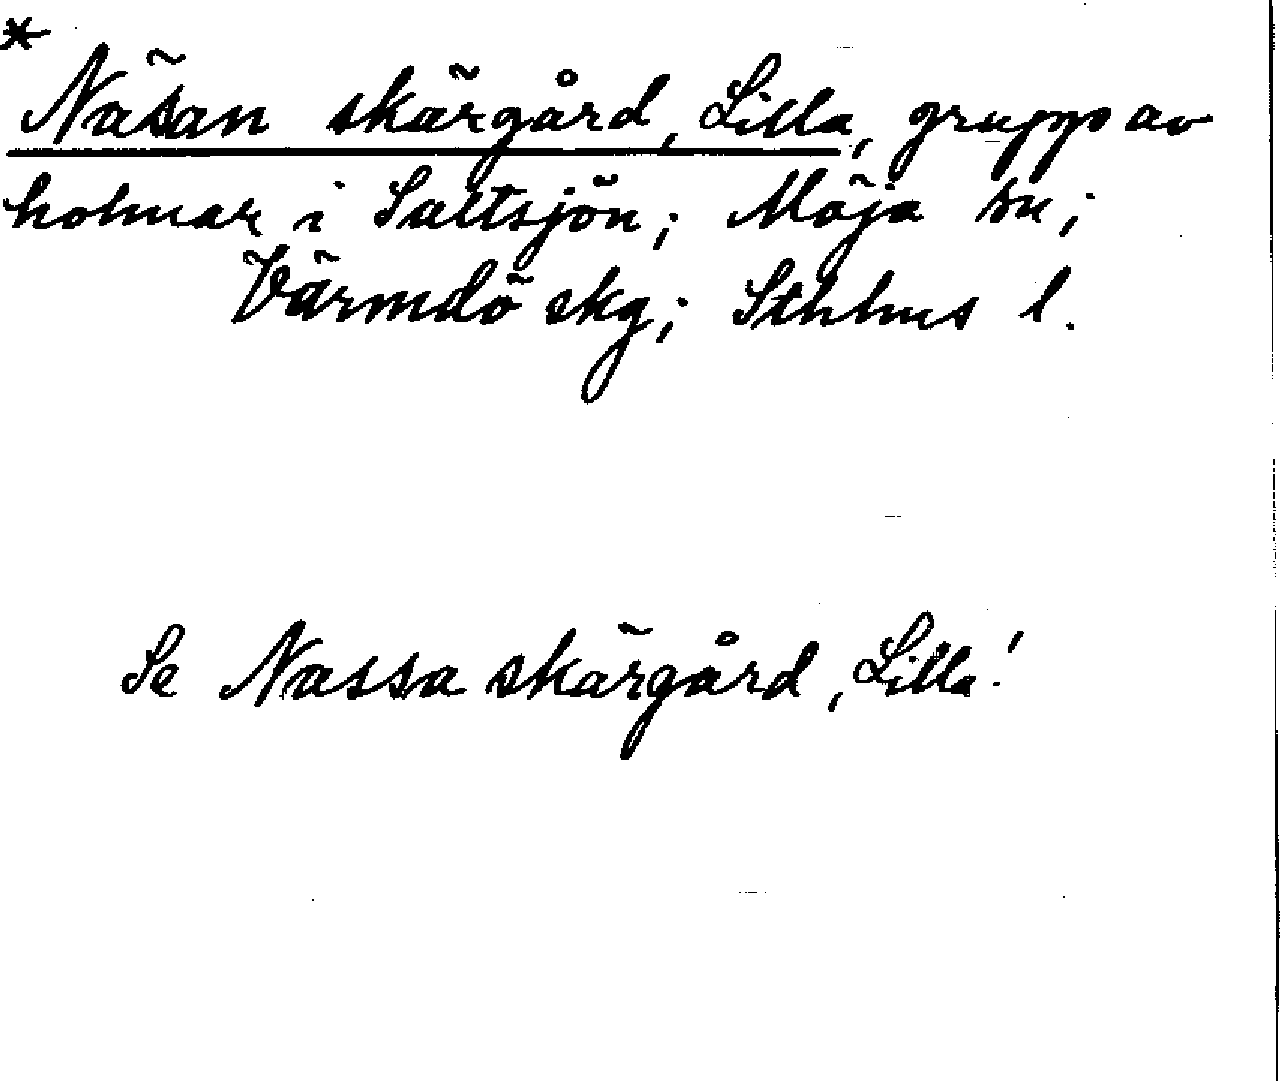 *
Näsan skärgård, Lilla, grupp av
holmar i Saltsjön; Möja sn;
Värmdö skg; Sthlms l.
Se Nassa skärgård, Lilla!